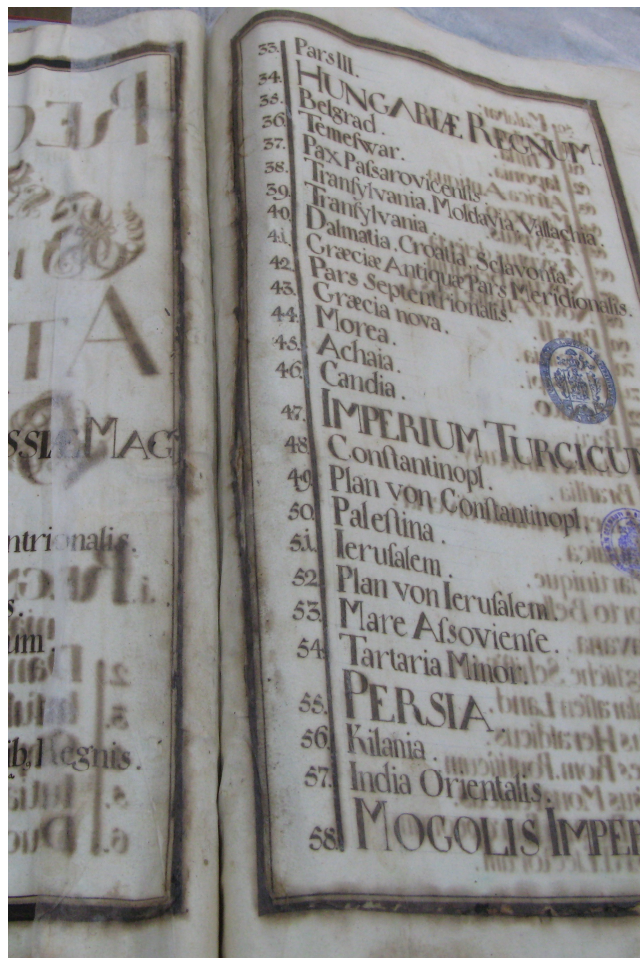 SSIÆ MAG
ntrionalis.
um.
ib. Regnis.
33. Pars III.
34. HUNGARIÆ REGNUM.
35. Belgrad.
36. Temeſwar.
37. Pax Paſsarovicenſis.
38. Tranſylvania. Moldavia. Vallachia.
39. Tranſylvania.
40. Dalmatia. Croatia. Sclavonia.
4i. Græciæ Antiquæ Pars Meridionalis.
42. Pars Septentrionalis.
43. Græcia nova.
44. Morea.
45. Achaia.
46. Candia.
47. IMPERIUM TURCICU
48. Conſtantinopl.
49. Plan von Conſtantinopl.
50. Paleſtina.
5i. Ieruſalem.
52. Plan von Ieruſalem.
53. Mare Aſsovienſe.
54. Tartaria Minor.
55. PERSIA
56. Kilania.
57. India Orientalis.
58. MOGOLIS IMPER